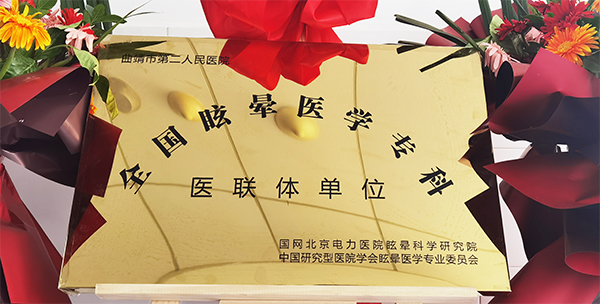 曲靖市第二人民医院
全国眩晕医学专科
医联体单位
国网北京电力医院眩晕科学研究院
中国研究型医院学会眩晕医学专业委员会